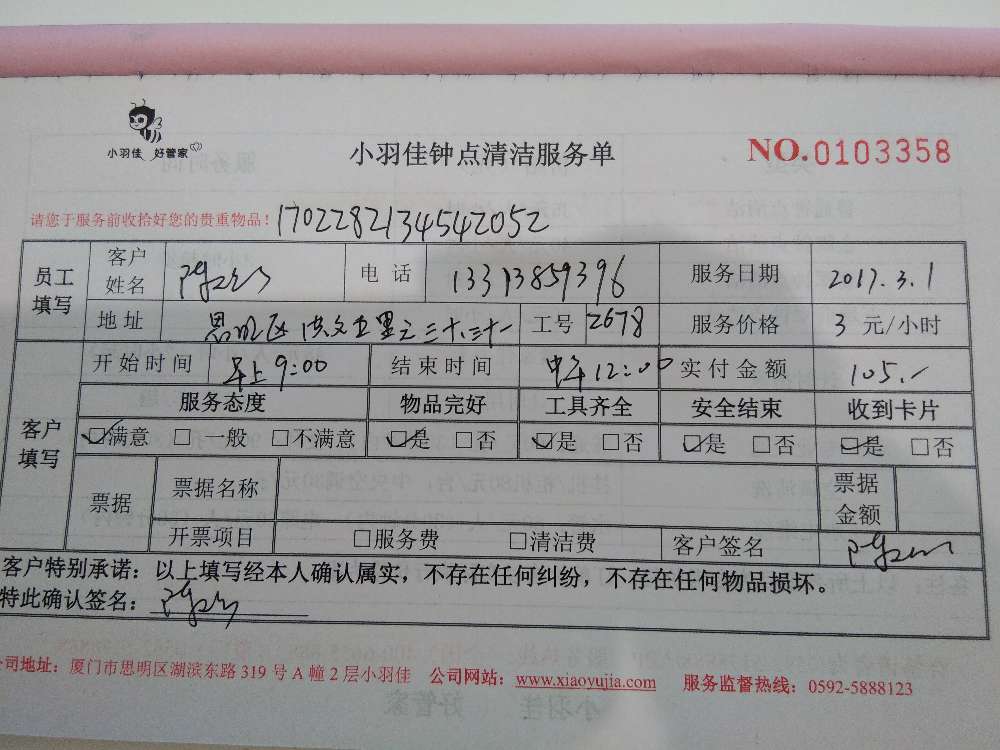 小羽佳 好管家
小羽佳钟点清洁服务单
NO.0103358
请您于服务前收拾好您的贵重物品! 1702282134542052
员工填写 客户姓名 电话 13313859396 服务日期 2017.3.1
地址 思明区洪文五里之三十.三十一 工号 2678 服务价格 3 元/小时
客户填写 开始时间 早上9:00 结束时间 中午12:00 实付金额 105.-
服务态度 物品完好 工具齐全 安全结束 收到卡片
☑满意 □一般 □不满意 ☑是 □否 ☑是 □否 ☑是 □否 ☑是 □否
票据 票据名称 票据金额
开票项目 □服务费 □清洁费 客户签名
客户特别承诺：以上填写经本人确认属实，不存在任何纠纷，不存在任何物品损坏。
特此确认签名：
公司地址：厦门市思明区湖滨东路 319 号 A 幢 2 层小羽佳 公司网站：www.xiaoyujia.com 服务监督热线：0592-5888123